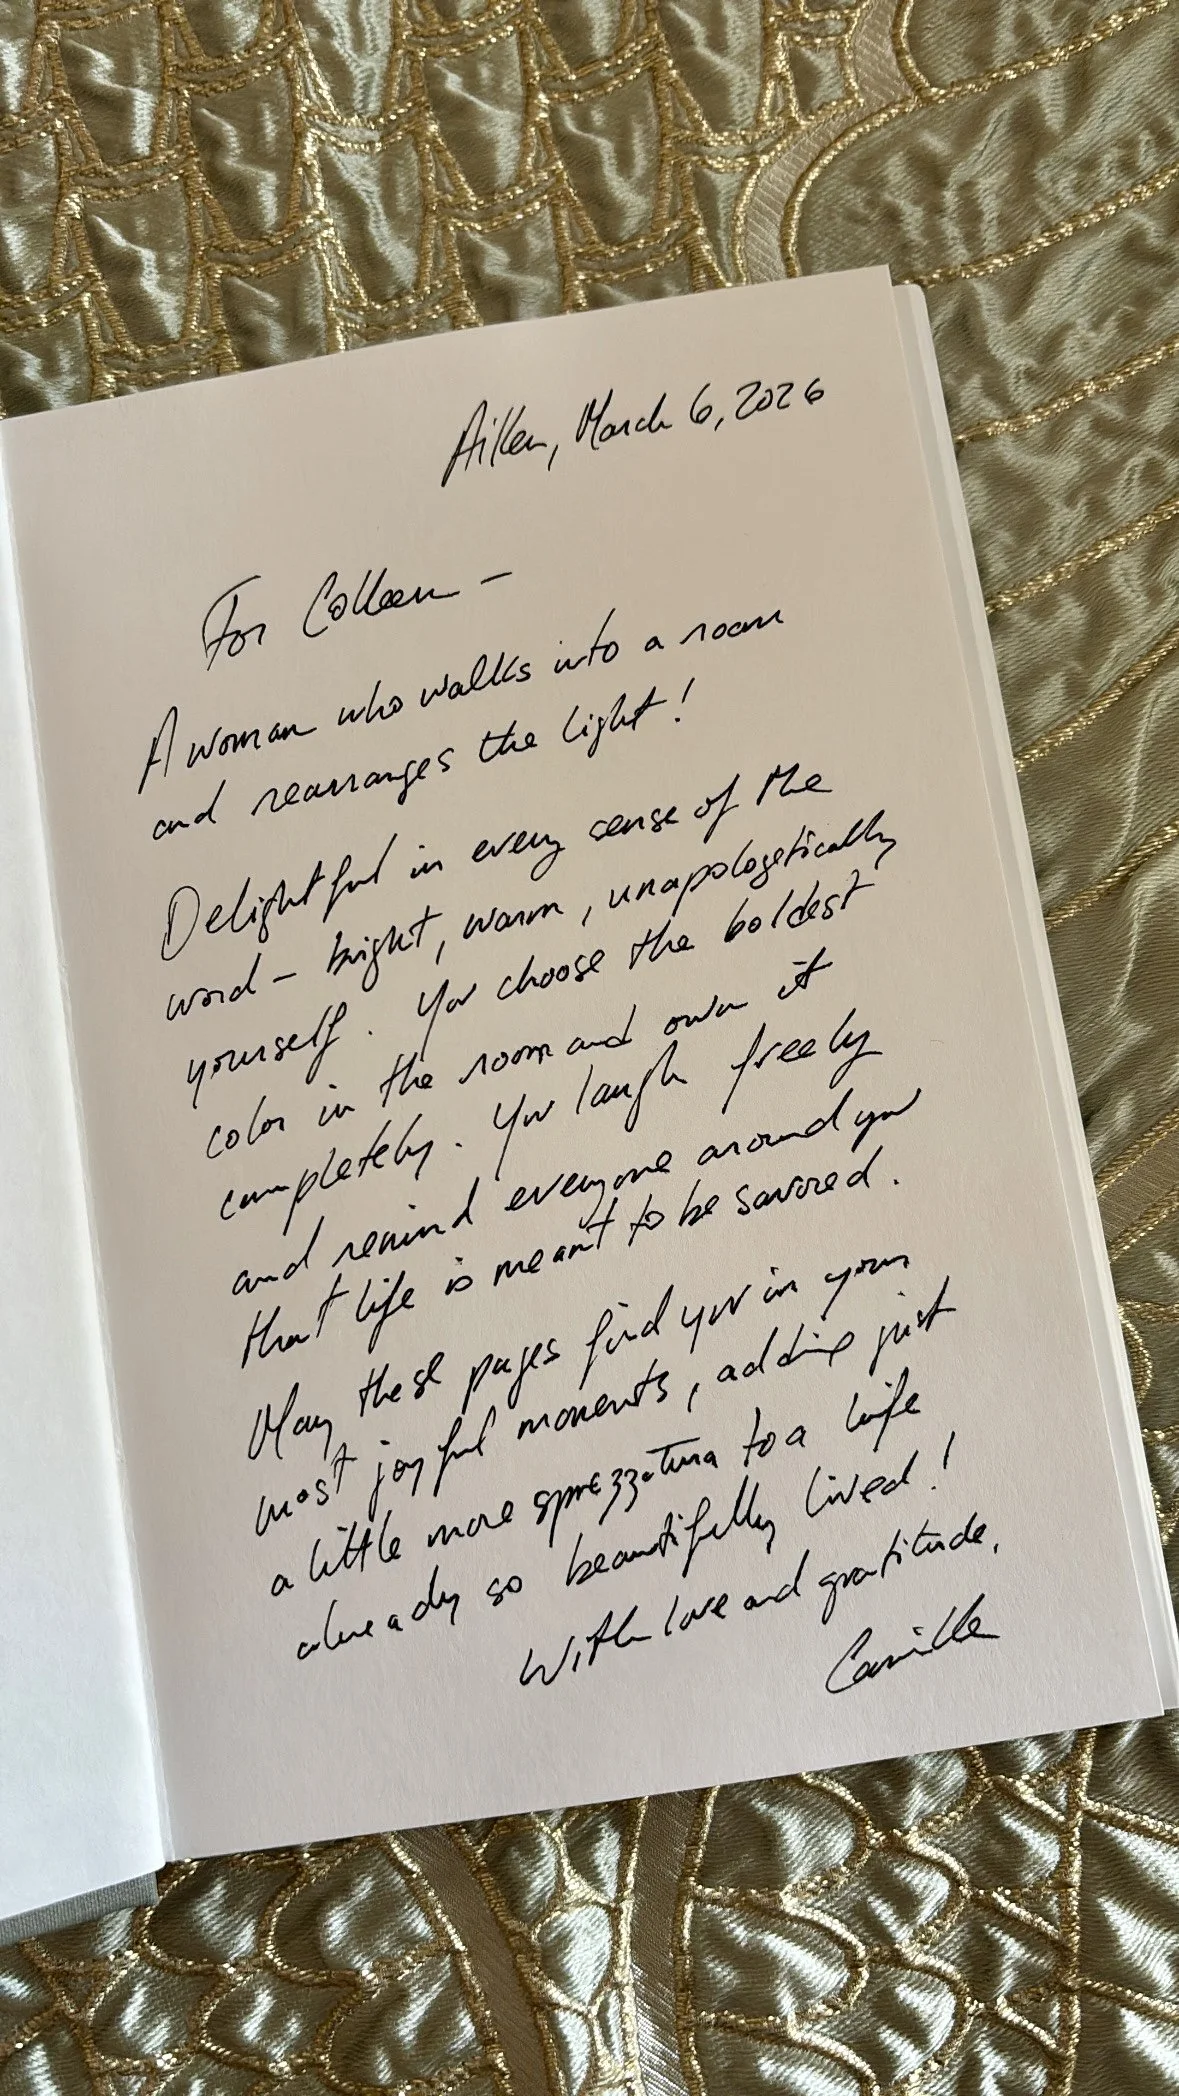 Aiken, March 6, 2026
For Colleen –
A woman who walks into a room
and rearranges the light!
Delightful in every sense of the
word – bright, warm, unapologetically
yourself. You choose the boldest
color in the room and own it
completely. You laugh freely
and remind everyone around you
that life is meant to be savored.
May these pages find you in your
most joyful moments, adding just
a little more sprezzatura to a life
already so beautifully lived!
With love and gratitude,
Camille